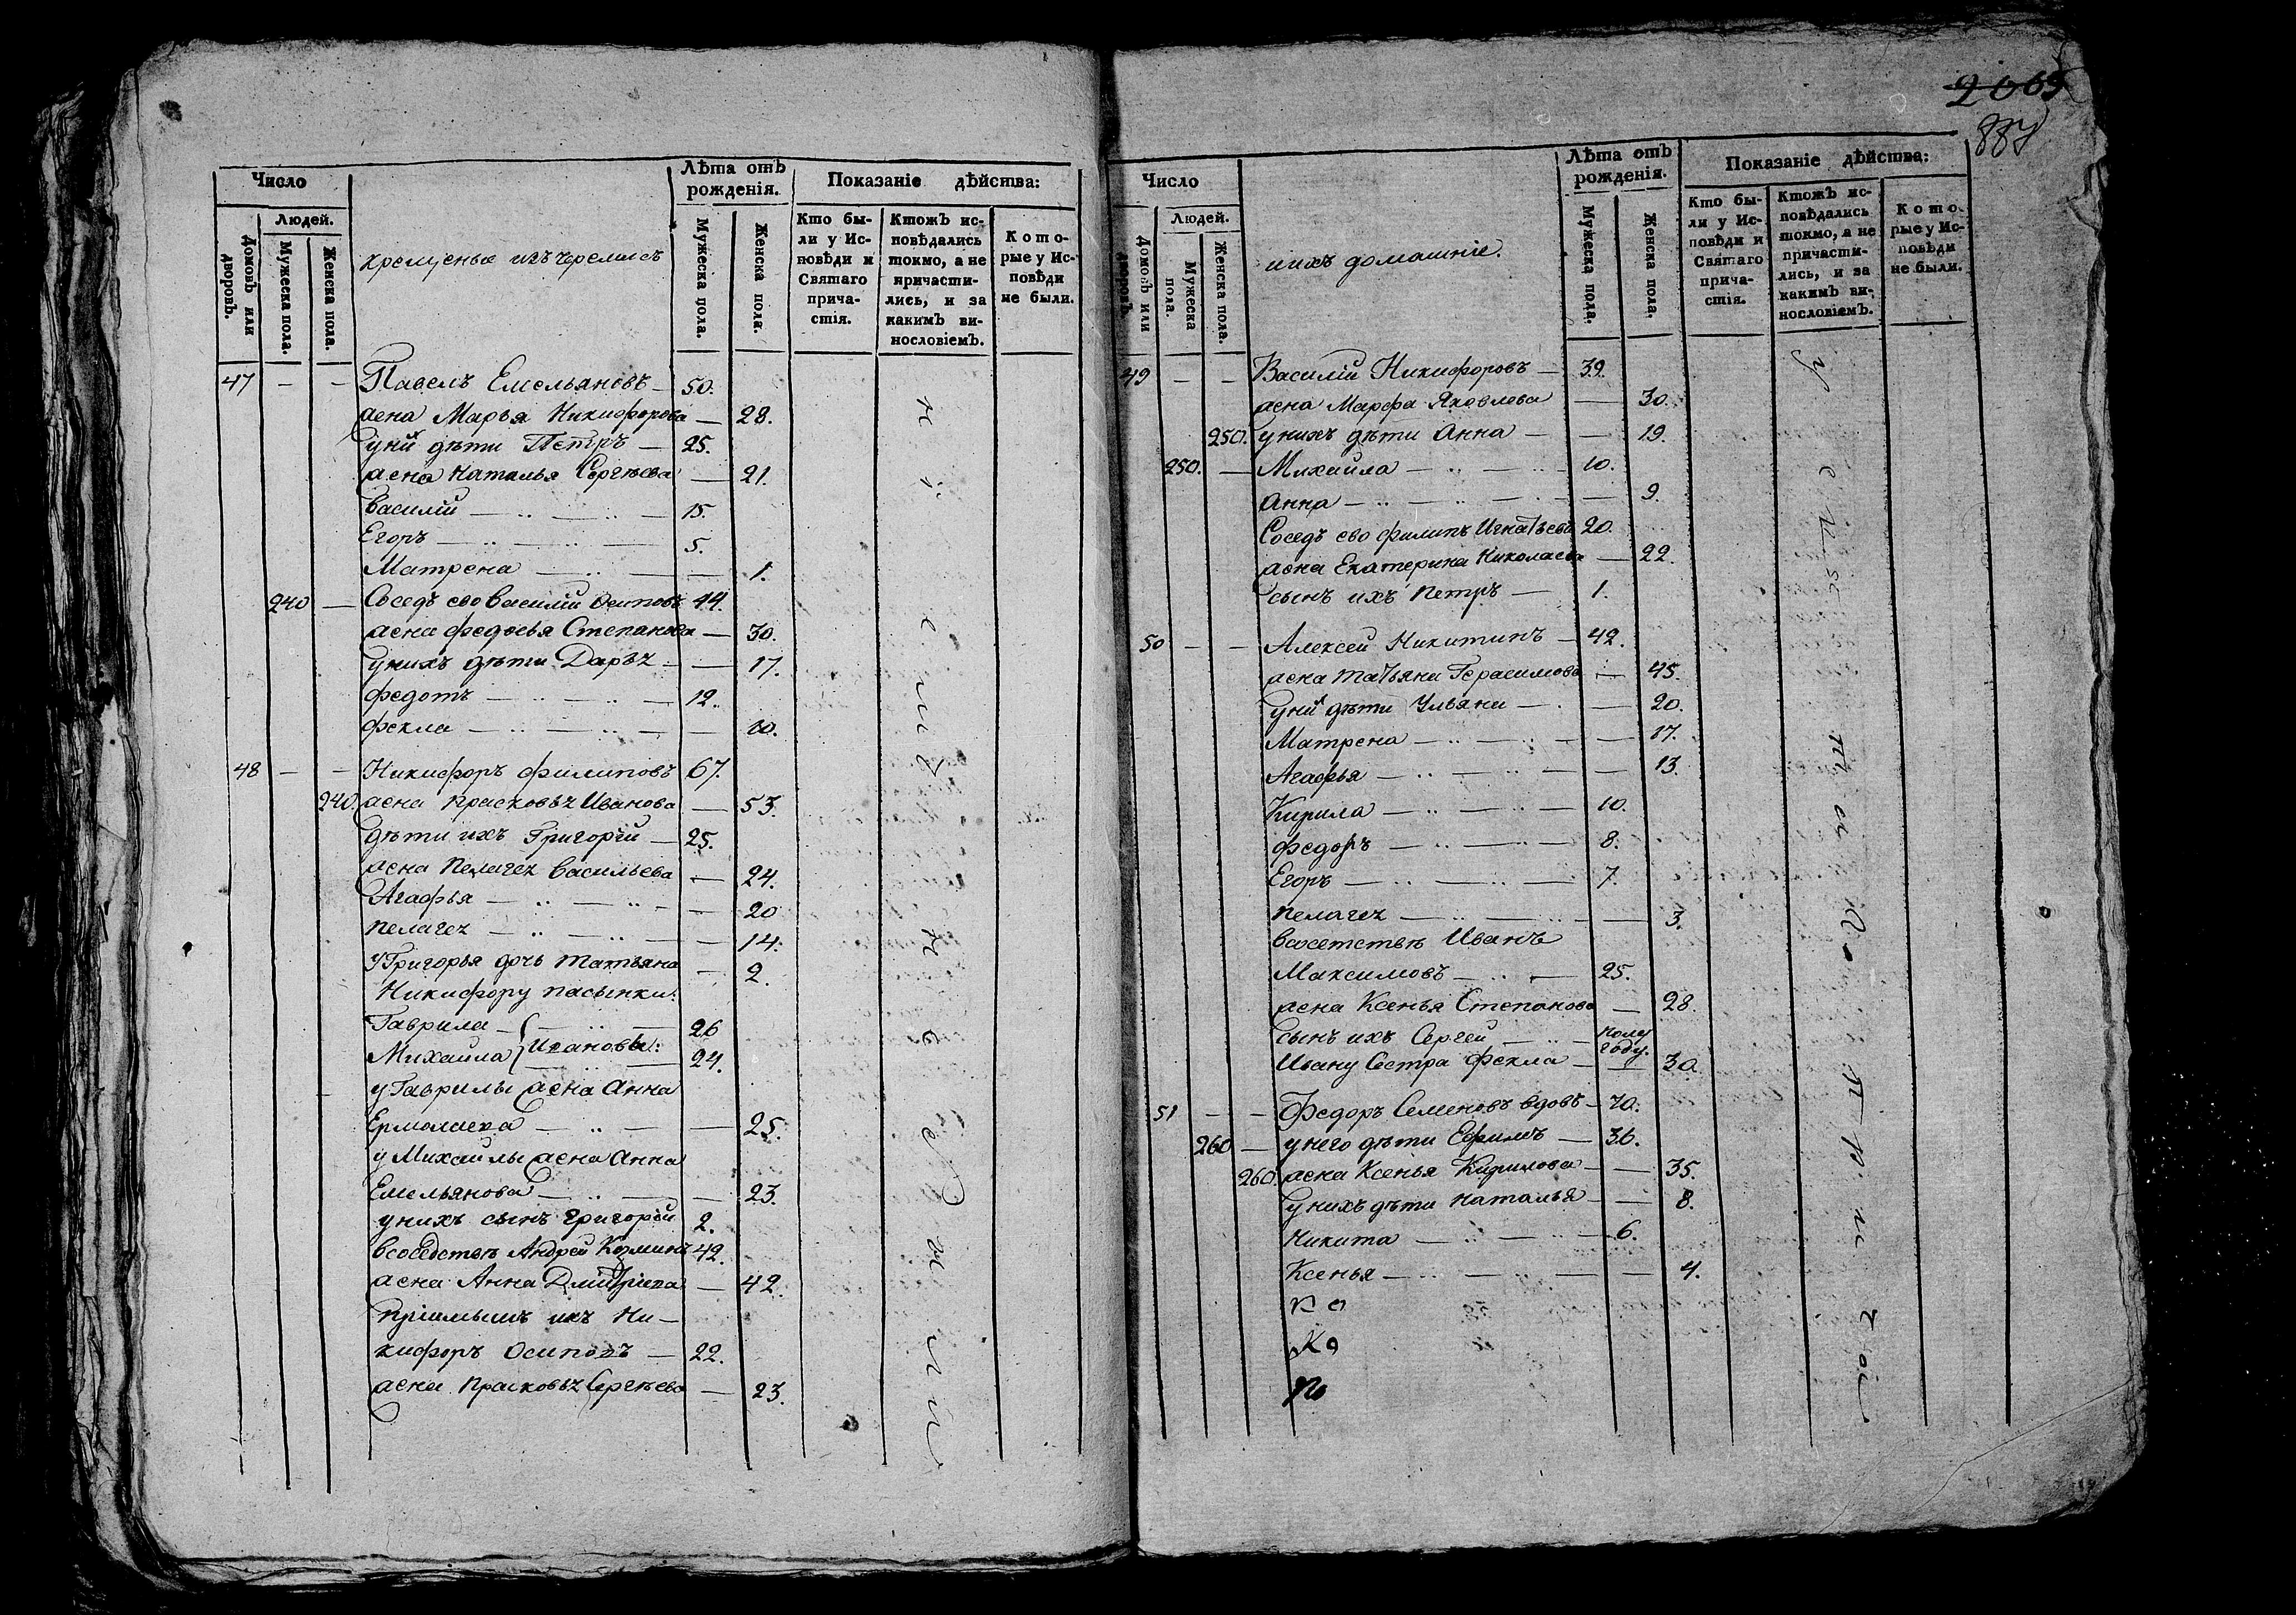 Число
Людей.
Домовъ или дворовъ.
Мужеска пола.
Женска пола.
крещеные изъ черемисъ
Лѣта отъ рожденія.
Мужеска пола.
Женска пола.
Показаніе дѣйства:
Кто были у Исповѣди и Святаго причастія.
Ктожъ исповѣдались токмо, а не причастились, и за какимъ винословіемъ.
Которые у Исповѣди не были.
47 — — Павелъ Емельяновъ — 50.
жена Марья Никифорова — 28.
у них дѣти Петръ — 25.
жена Наталья Сергѣева — 21.
Василій — 15.
Егоръ — 5.
Матрена — 1.
240 — Соседъ ево Василій Осиповъ 44.
жена Федосья Степанова — 30.
у нихъ дѣти Дарья — 17.
Федотъ — 12.
Фекла — 10.
48 — — Никифоръ Филиповъ 67.
240. жена Прасковья Иванова — 53.
дѣти ихъ Григорій — 25.
жена Пелагея Васильева — 24.
Агафья — 20
Пелагея — 14.
у Григорья дочь Татьяна — 2.
Никифору пасынки:
Гаврила — 26
Михаила } Ивановы: 24.
у Гаврилы жена Анна
Ермолаева — 25.
у Михаилы жена Анна
Емельянова — 23.
у нихъ сынъ Григорій 2.
в соседствѣ Андрей Козминъ 42.
жена Анна Дмитріева — 42.
пріимышъ ихъ Ни—
кифоръ Осиповъ — 22.
жена Прасковья Сергѣева — 23.
2069
887
Число
Людей.
Домовъ или дворовъ.
Мужеска пола.
Женска пола.
и ихъ домашніе.
Лѣта отъ рожденія.
Мужеска пола.
Женска пола.
Показаніе дѣйства:
Кто были у Исповѣди и Святаго причастія.
Ктожъ исповѣдались токмо, а не причастились, и за какимъ винословіемъ.
Которые у Исповѣди не были.
49 — — Василій Никифоровъ — 39.
жена Марфа Яковлева — 30.
250. у нихъ дѣти Анна — 19.
250. — Михаила — 10.
Анна — 9.
Соседъ ево Филипъ Игнатьевъ 20.
жена Екатерина Николаева — 22.
сынъ ихъ Петръ — 1.
50 — — Алексей Никитинъ — 42.
жена Татьяна Герасимова — 45.
у них дѣти Ульяна — 20.
Матрена — 17.
Агафья — 13.
Кирила — 10.
Федоръ — 8.
Егоръ — 7.
Пелагея — 3.
в соседствѣ Иванъ
Максимовъ — 25.
жена Ксенья Степанова — 28.
сынъ ихъ Сергей — полу году.
Ивану Сестра Фекла — 30.
51 — — Федоръ Семеновъ вдовъ — 70.
260 — у него дѣти Ефимъ — 36.
260. жена Ксенья Кирилова — 35.
у нихъ дѣти Наталья — 8.
Никита — 6.
Ксенья — 4.